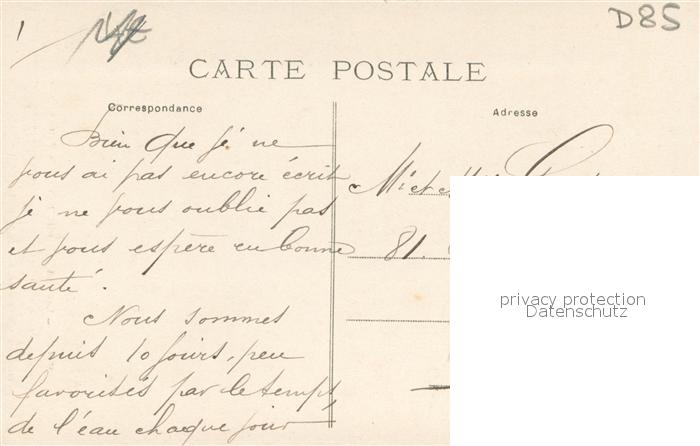 D85
CARTE POSTALE
Correspondance
Adresse
Bien que je ne
vous ai pas encore écrit
je ne vous oublie pas
et vous espère en bonne
santé.
Nous sommes
depuis 10 jours, peu
favorisés par le temps,
de l'eau chaque jour
M. et
81.
privacy protection
Datenschutz